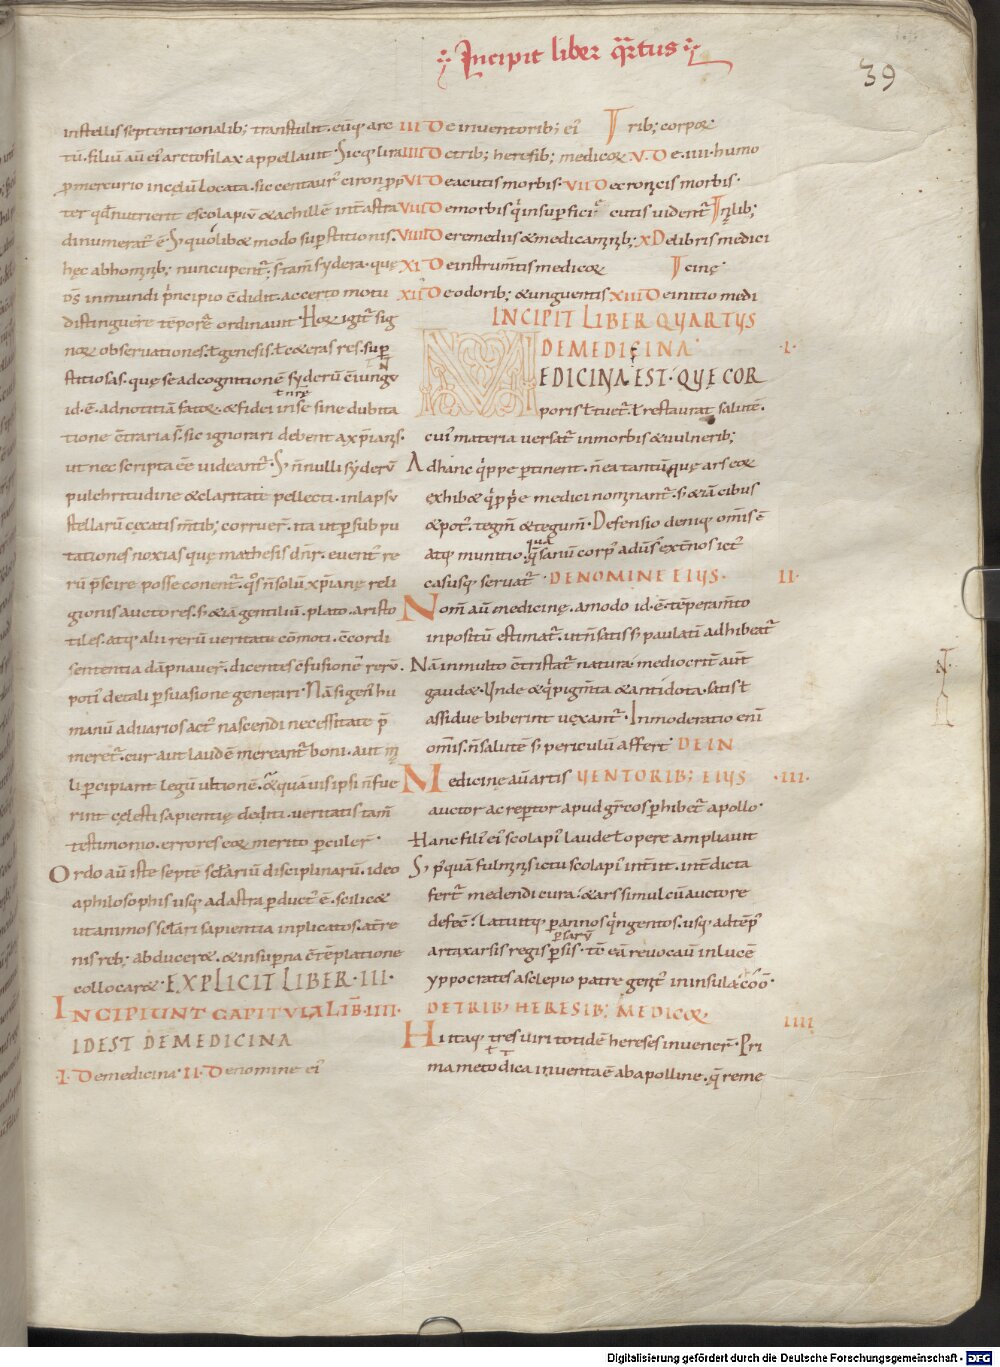 Incipit liber qrtus
39
in stellis septentrionalib; transtulit. eūq; arc
tū. filiū aū ei' arctofilax appellavit Sicq; lira
p mercurio in cęlū locata. sic centaur' ciron pp
ter qd nutrierit escolapiū & achillē int astra
dinumerat' ē. S; quolib& modo sup stitionis.
hęc ab hominib; nuncupent'; s tam sydera. quę
ds in mundi principio c didit. ac certo motu
distinguere tempora ordinavit. Hor igit' sig
nor observationes. t genesis. t c&eras res. sup
stitiosas. quę se ad cognitionē syderū c iungv
id. ē. ad notitiā fator. & fidei nrę sine dubita
tione c traria s. sic ignorari debent a xpianis.
ut nec scripta ee videant'. S; nnulli syderū
pulchritudine & claritate pellecti. in lapsv
stellarū cęcatis mtib; corruer. ita ut p subpu
tationes noxias quę mathesis dnr. event' re
rū p scire posse conent'. qs n solū xpianę reli
gionis auctores. s; & iā gentiliū. plato. aristo
tiles. atq; alii rerū veritate cōmoti. c cordi
sententia dāpnaver. dicentes c fusionē rerū.
poti' de tali p suasione generari. Nā si gen' hu
manū ad varios act' nascendi necessitate p
meret'. cur aut laudē mereant' boni. aut m
li p cipiant legū ultionē. & quā vis ipsi n fue
rint cęlesti sapientię dediti. veritatis tam
testimonio. errores eor merito p culer
Ordo aū iste septē sclariū disciplinarū. ideo
a philosophis usq; ad astra p duct' ē. scilic&
ut animos sclari sapientia inplicatos. a t re
nis reb; abducer&. & in supna c tēplatione
collocar&. EXPLICIT LIBER. III.
INCIPIUNT CAPITVLA LIB. IIII.
ID EST DE MEDICINA
.I. De medicina. II. De nomine ei'
III De inventorib; ei' trib; corpor
IIII De trib; heresib; medicor V. De. IIII. humo
VI De acutis morbis. VII De cronicis morbis.
VIII De morbis q in sup ficie cutis vident' In lib;
VIIII De remediis & medicaminib; X De libris medici
XI De instrumtis medicor cinę
XII De odorib; & unguentis XIII De initio medi
INCIPIT LIBER QVARTVS
DE MEDICINA .I.
MEDICINA EST. QVE COR
poris t tuet' t restaurat salutē.
cui' materia versat' in morbis & vulnerib;
Ad hanc q'ppe p tinent. n ea tantū quę ars eor
exhib& q pprie medici nominant'. s; & iā cibus
& pot'. tegm & tegum. Defensio deniq; omis ē
atq; munitio. qua sanū corp' adus' ext nos ict'
casusq; servat'. DE NOMINE EIVS. II.
Nom aū medicinę. a modo id. ē. tēperamto
inpositū estimat'. ut n satis s; paulatī adhibeat'
Nā in multo c tristat' natura. mediocrit aut
gaud&. Unde & q pigmta & antidota. satis t
assidue biberint vexant'. Inmoderatio eni
omis. n salutē s; periculū affert' DE IN
Medicinę aū artis VENTORIB; EIVS .III.
auctor ac rep tor apud grcos p hibet' apollo.
Hanc fili' ei' scolapi' laude t opere ampliavit
S; p quā fulminis ictu scolapi' int iit. int dicta
fert' medendi cura. & ars simul cū auctore
defec. Latuitq; p annos q'ngentos. usq; ad tēp'
artaxarsis regis psarv. tc eā revocavit in lucē
yppocrates asclepio patre genit' in insula coo
DE TRIB; HERESIB; MEDICOR. IIII
Hi itaq; tres viri totidē hereses invener. Pri
ma metodica inventa ē ab apolline. q reme
Digitalisierung gefördert durch die Deutsche Forschungsgemeinschaft - DFG